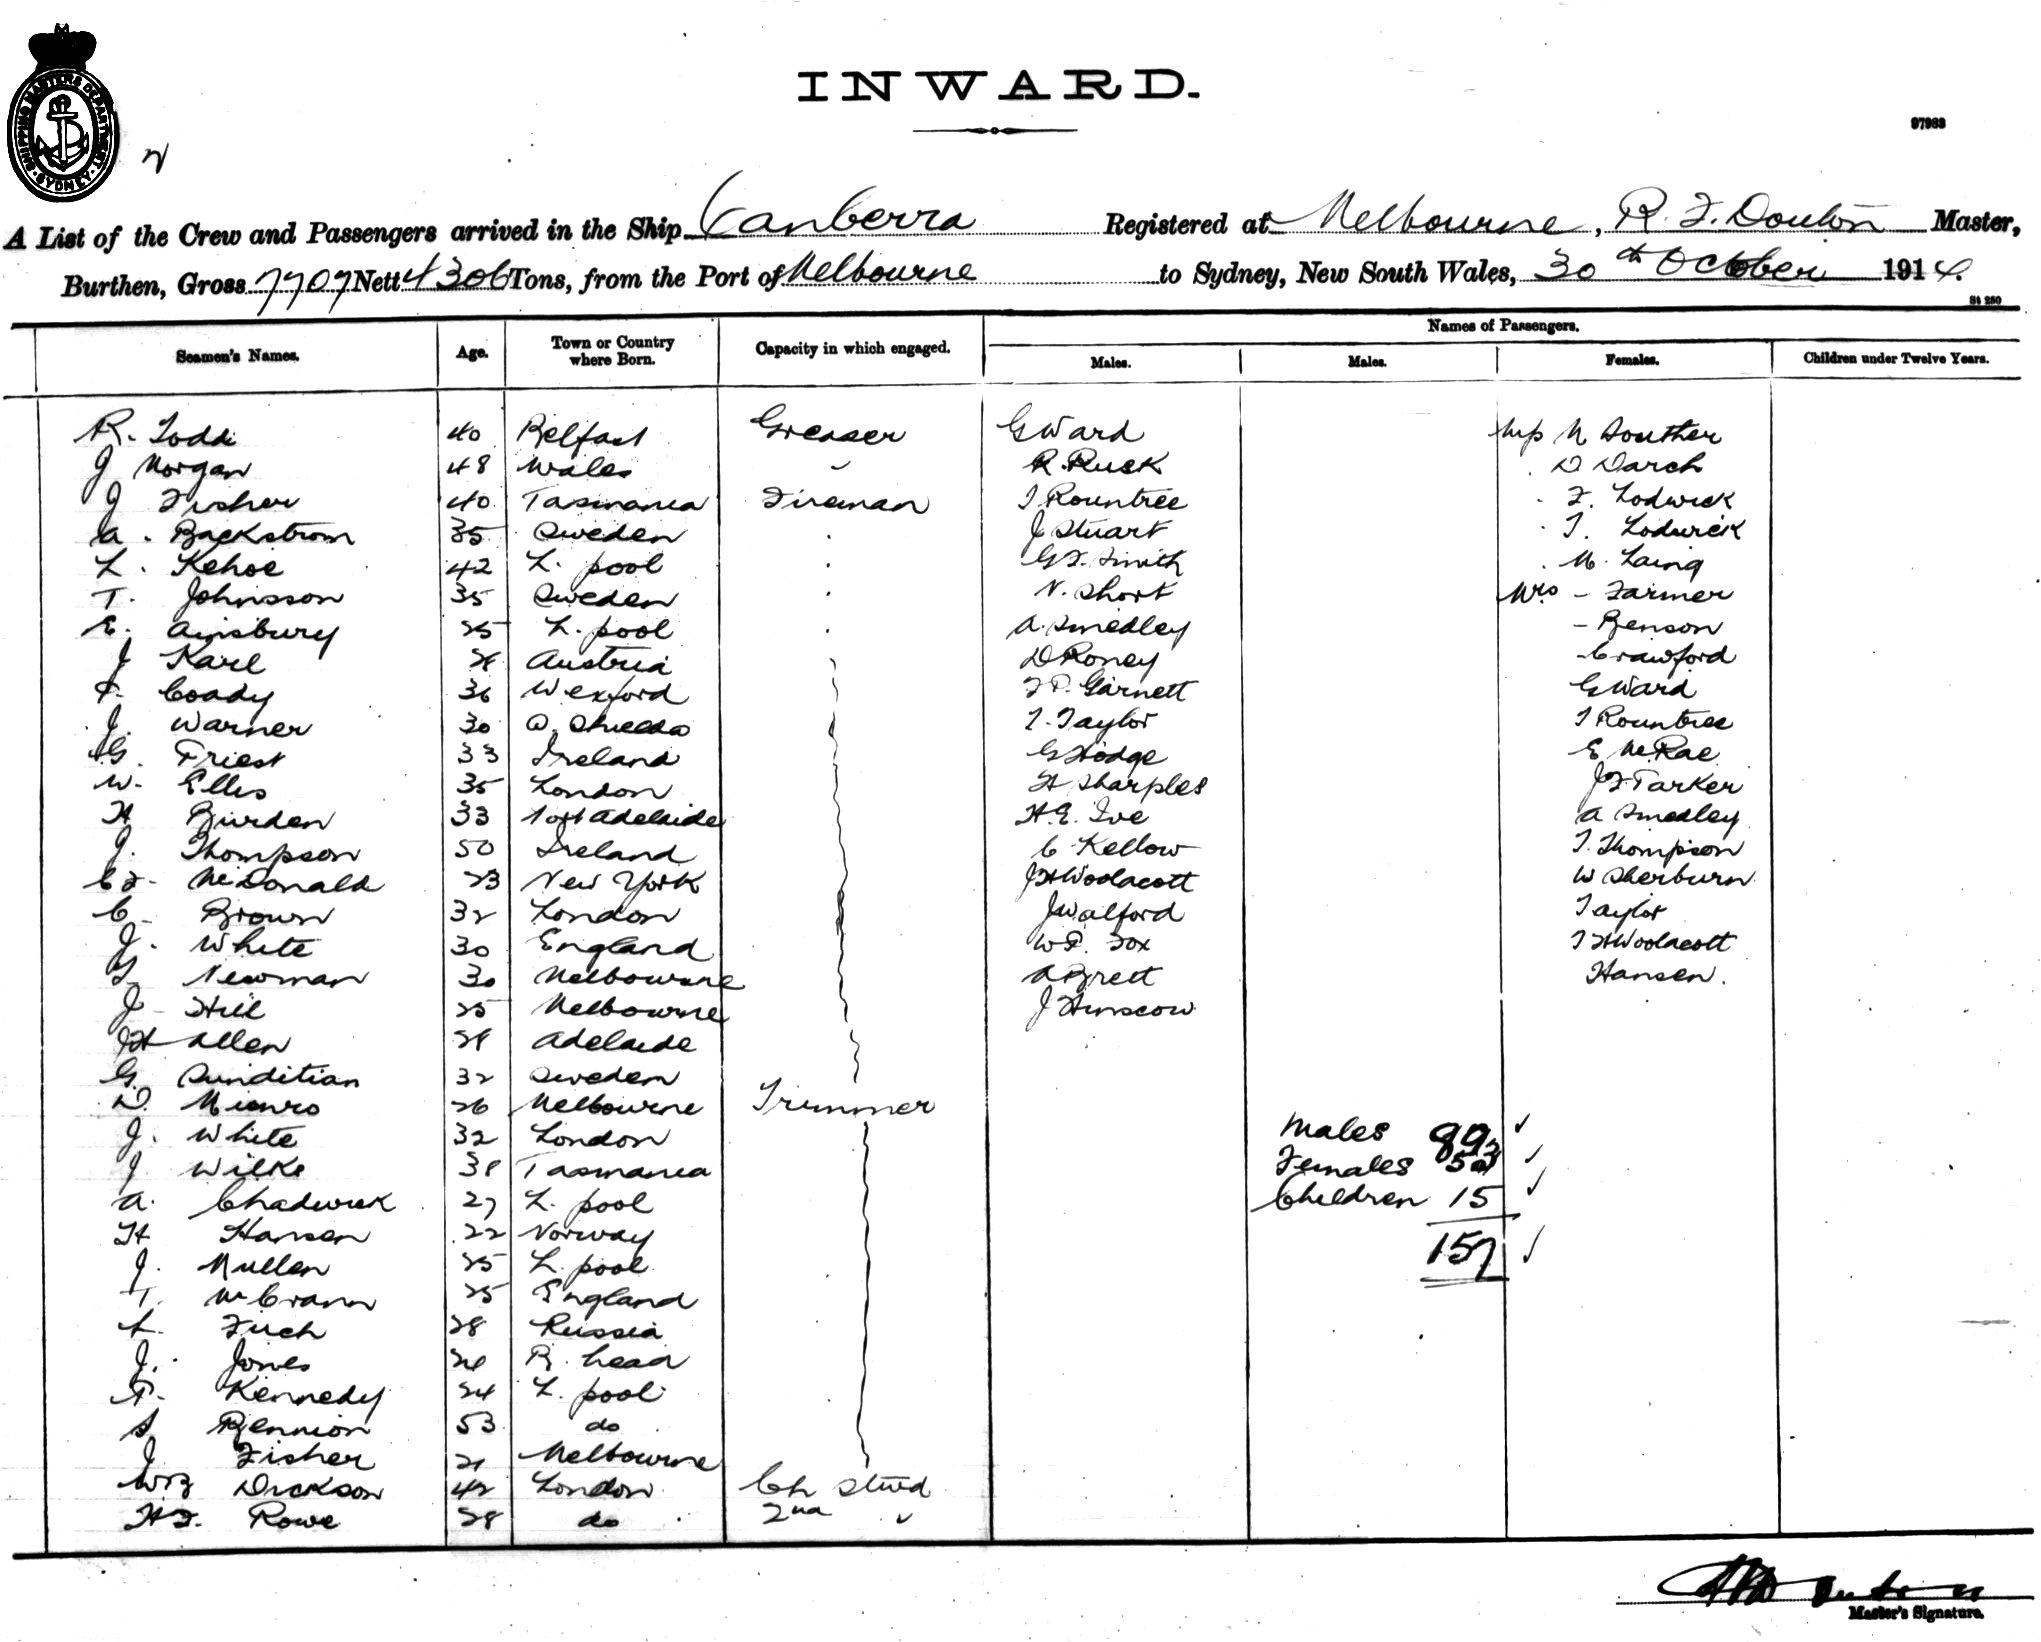 SHIPPING MASTERS DEPARTMENT SYDNEY
INWARD.
97983
A List of the Crew and Passengers arrived in the Ship Canberra Registered at Melbourne, R. F. Doulton Master,
Burthen, Gross 7707 Nett 4306 Tons, from the Port of Melbourne to Sydney, New South Wales, 30th October 1914.
St 250
Names of Passengers.
Seamen's Names. Age. Town or Country where Born. Capacity in which engaged. Males. Males. Females. Children under Twelve Years.
R. Todd 40 Belfast Greaser G Ward N Souther
J Morgan 48 Wales R. Ruck D Darch
J Fisher 40 Tasmania Fireman T Rountree F. Lodwick
A. Backstrom 35 Sweden J Stuart T. Lodwick
L. Kehoe 42 L. pool G F. Smith M. Laing
T. Johnsson 35 Sweden N. Short Mrs - Farmer
E. Ainsbury 25 L. pool A. Smedley - Benson
J Karl Austria D Roney - Crawford
P. Coady 36 Wexford F P. Garnett G Ward
J. Warner 30 T. Taylor T Rountree
G. Priest 33 Ireland G Hodge E McRae
W. Ellis 35 London H Sharples J F. Parker
H Burden 33 Port Adelaide H. E. Ive A Smedley
J. Thompson 50 Ireland C Kellow T. Thompson
C F. McDonald 23 New York J H Woolacott W Sherburn
C. Brown 32 London J Walford Taylor
J. White 30 England W P. Fox T H Woolacott
Newman 30 Melbourne A Brett Hansen.
J Hill 25 Melbourne J Hinscow
J H Allen 28 Adelaide
G. Sunditian 32 Sweden
D. Munro 26 Melbourne Trimmer
J. White 32 London Males 89
J Wilks 38 Tasmania Females
A. Chadwick 27 L. pool Children 15
H Hansen 22 Norway
J. Mullen 25 L. pool 157
T. McCrann 25 England
L. 28 Russia
J. Jones B. head
P. Kennedy 24 L. pool
S Bennion 53 do
J. Fisher 21 Melbourne
Dickson 42 London Ch Stwd
H F. Rowe 28 do 2nd "
Master's Signature.